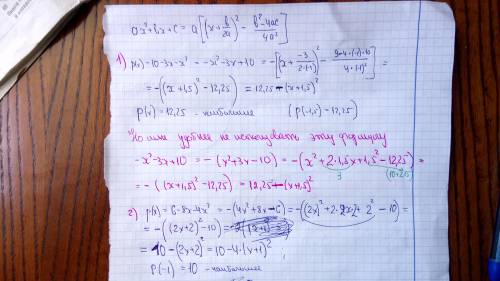 ax²+bx+c = a[(x+b/2a)² - b²-4ac/4a²]
1) p(x)=10-3x-x² = -x²-3x+10 = -[(x+ -3/2·(-1))² - 9-4·(-1)·10/4·(-1)²] =
= -((x+1,5)² -12,25) = 12,25-(x+1,5)²
p(x)=12,25 - наибольшее (p(-1,5)-12,25)
Но мне удобнее не использовать эту формулу
-x²-3x+10 = -(x²+3x-10) = -(x²+2·1,5x+1,5²-12,25) =
3 (10+2,25)
= -((x+1,5)²-12,25) = 12,25-(x+1,5)²
2) p(x)=6-8x-4x² = -(4x²+8x-6) = -((2x)²+2·2x·2+2²-10) =
= -((2x+2)²-10) =
= 10-(2x+2)² = 10-4·(x+1)²
p(-1)=10 - наибольшее